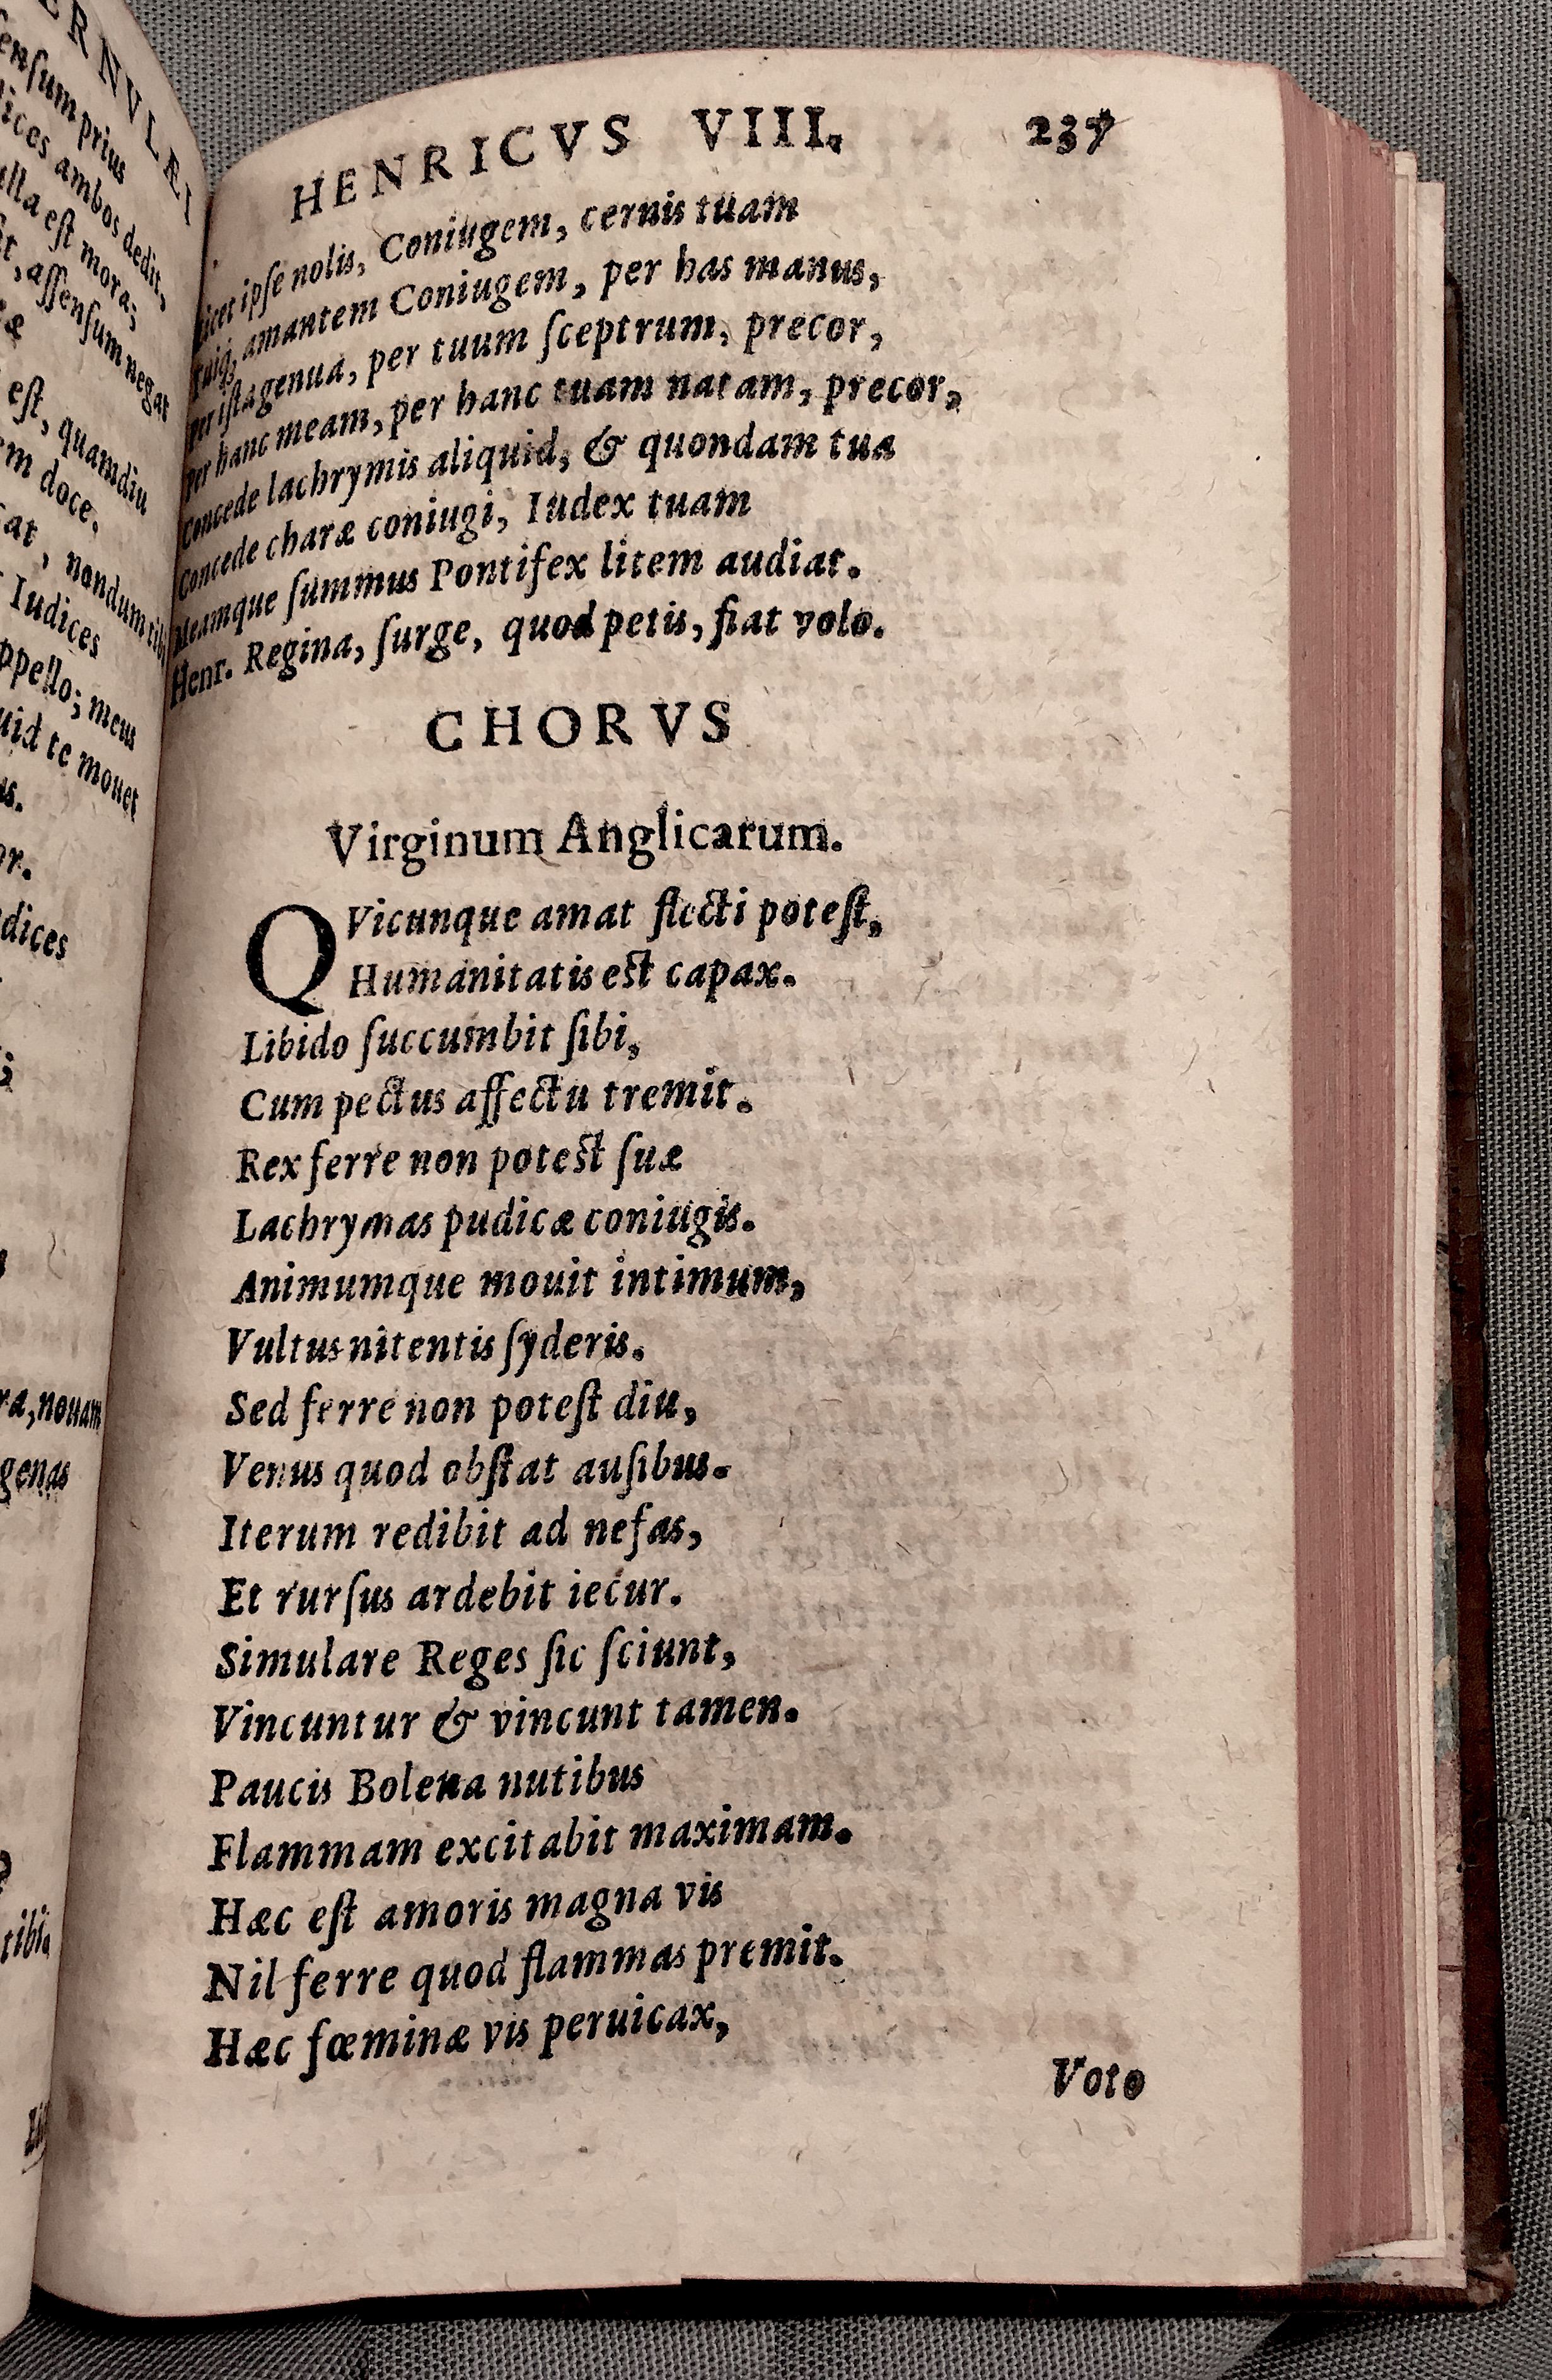 ERNVLÆI
ensum prius
dices ambos dedit,
lla est mora;
assensum negat
est, quamdiu
m doce.
at, nondum tibi
Iudices
ppello; meus
uid te mouet
us.
or.
dices
ra, nouam
genas
tibi
HENRICVS VIII. 237
Licet ipſe nolis, Coniugem, cernis tuam
Tuiq; amantem Coniugem, per has manus,
Per iſta genua, per tuum ſceptrum, precor,
Per hanc meam, per hanc tuam natam, precor,
Concede lachrymis aliquid, & quondam tua
Concede charæ coniugi, Iudex tuam
Meamque ſummus Pontifex litem audiat.
Henr. Regina, ſurge, quod petis, fiat volo.
CHORVS
Virginum Anglicarum.
QVicunque amat flecti poteſt,
Humanitatis est capax.
Libido ſuccumbit ſibi,
Cum pectus affectu tremit.
Rex ferre non potest ſuæ
Lachrymas pudicæ coniugis.
Animumque mouit intimum,
Vultus nitentis ſyderis.
Sed ferre non poteſt diu,
Venus quod obſtat auſibus.
Iterum redibit ad nefas,
Et rurſus ardebit iecur.
Simulare Reges ſic ſciunt,
Vincuntur & vincunt tamen.
Paucis Bolena nutibus
Flammam excitabit maximam.
Hæc eſt amoris magna vis
Nil ferre quod flammas premit.
Hæc fœminæ vis peruicax,
Voto